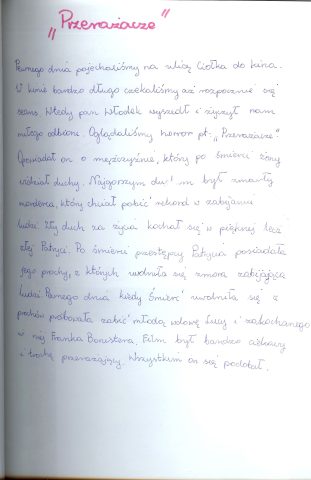 „Przerażacze”
Pewnego dnia pojechaliśmy na ulicę Ciołka do kina.
W kinie bardzo długo czekaliśmy aż rozpocznie się
seans. Wtedy pan Włodek wyszedł i życzył nam
miłego odbioru. Oglądaliśmy horror pt. „Przerażacze”.
Opowiadał on o mężczyźnie, który po śmierci żony
widział duchy. Najgorszym duchem był zmarły
morderca, który chciał pobić rekord w zabijaniu
ludzi. Zły duch za życia kochał się w pięknej lecz
złej Patrycji. Po śmierci przestępcy Patrycja posiadała
jego prochy, z których uwolniła się zmora zabijająca
ludzi. Pewnego dnia kiedy Śmierć uwolniła się z
prochów próbowała zabić młodą wdowę Lucy i zakochanego
w niej Franka Banistera. Film był bardzo ciekawy
i trochę przerażający. Wszystkim on się podobał.